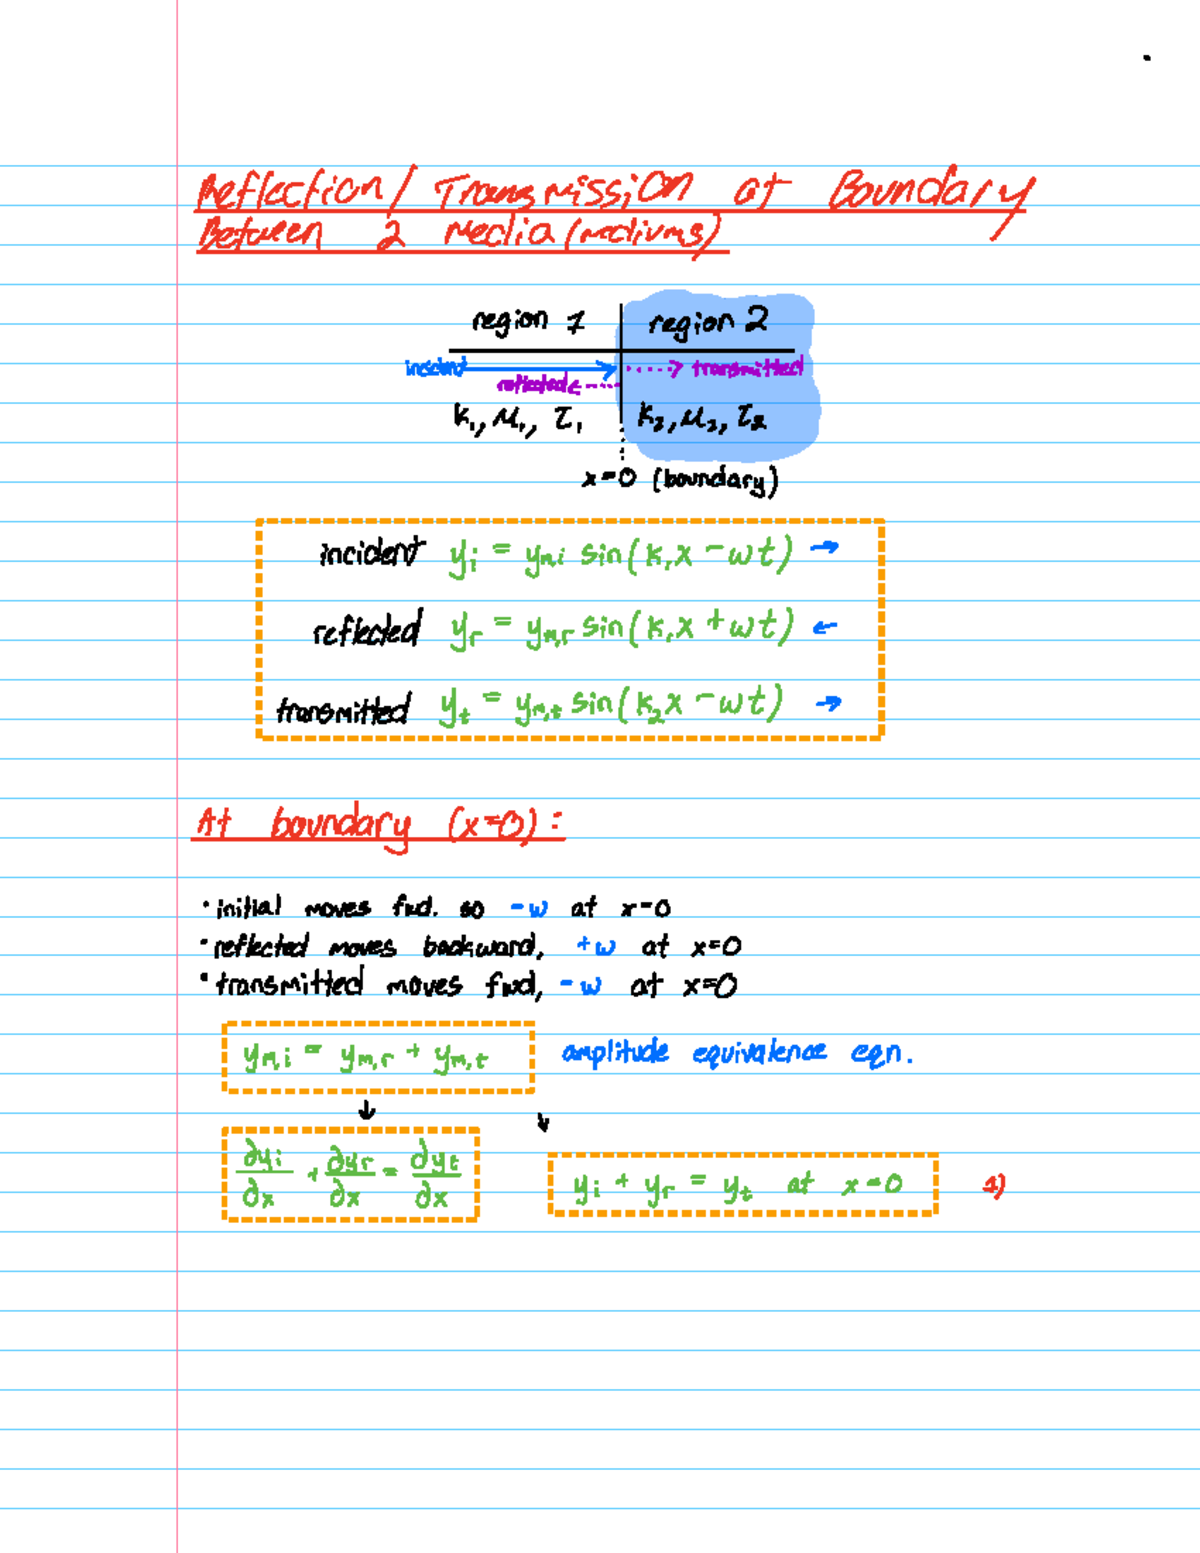 Reflection/Transmission at Boundary
Between 2 Media (mediums)
region 1 region 2
incident transmitted
reflected
k₁, μ₁, τ₁ k₂, μ₂, τ₂
x=0 (boundary)
incident yᵢ = yₘ,ᵢ sin(k₁x - ωt) →
reflected yᵣ = yₘ,ᵣ sin(k₁x + ωt) ←
transmitted yₜ = yₘ,ₜ sin(k₂x - ωt) →
At boundary (x=0):
• initial moves fwd. so -ω at x=0
• reflected moves backward, +ω at x=0
• transmitted moves fwd, -ω at x=0
yₘ,ᵢ = yₘ,ᵣ + yₘ,ₜ amplitude equivalence eqn.
↓ ↓
∂yᵢ/∂x + ∂yᵣ/∂x = ∂yₜ/∂x yᵢ + yᵣ = yₜ at x=0 1)